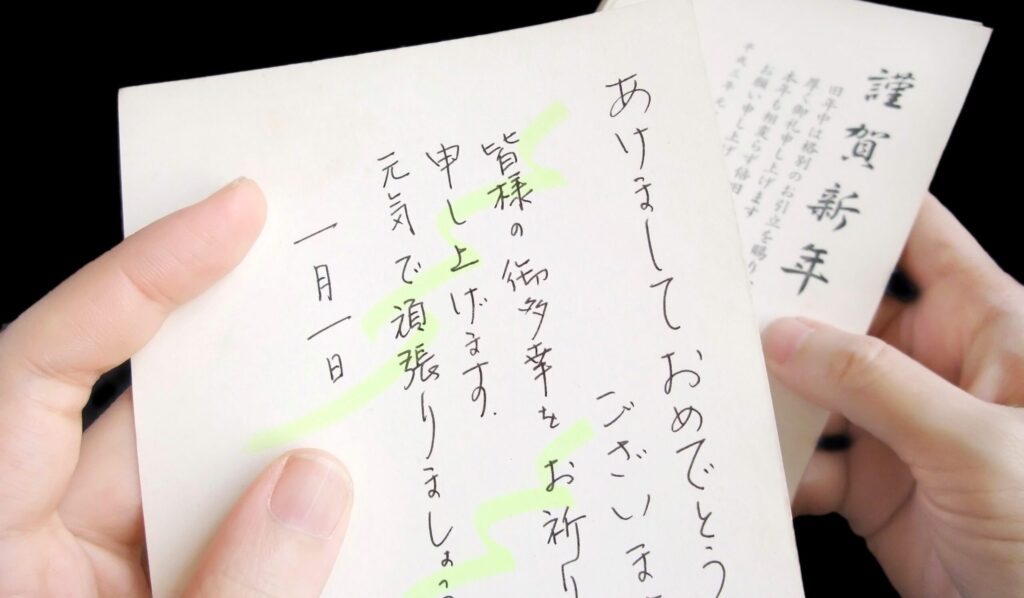 あけましておめでとう
ございま
皆様の御多幸をお祈り
申し上げます.
元気で頑張りましょう
一月一日
謹賀新年
旧年中は格別のお引立を賜り
厚く御礼申し上げます
本年も相変らず倍旧
お願い申し上げ
平成三年 元